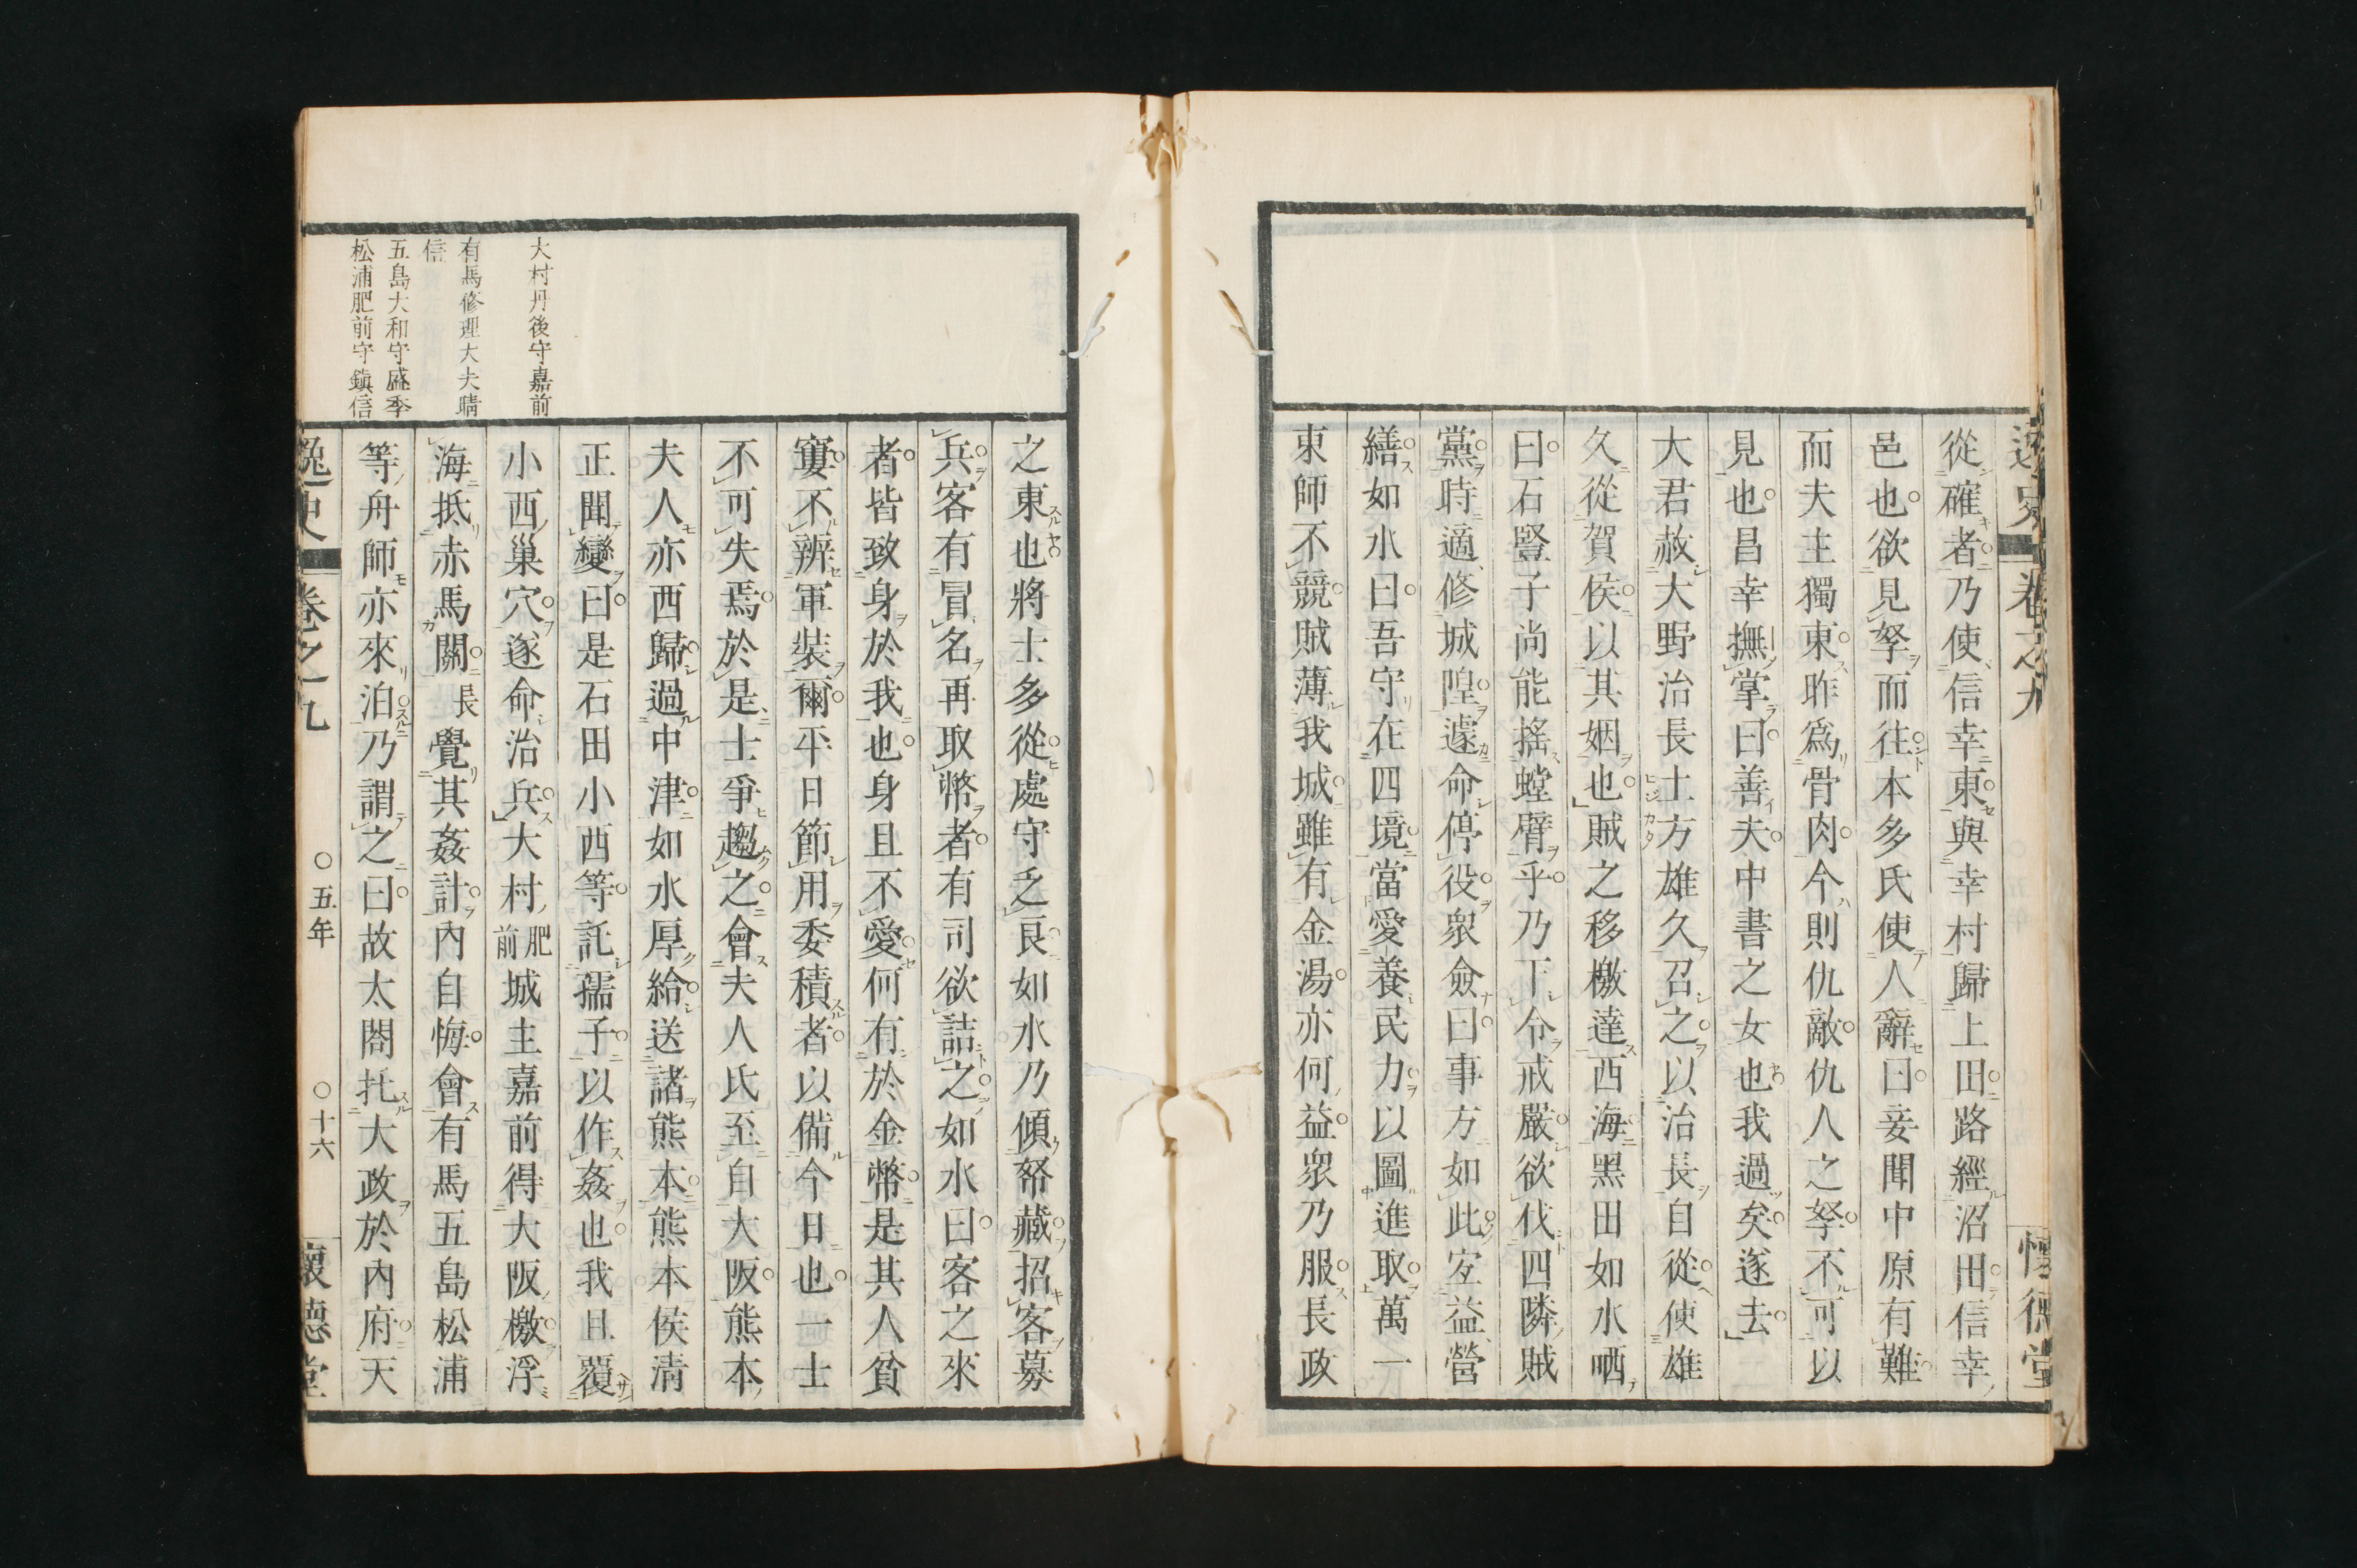 逸史 卷之九 懷德堂
從確者乃使信幸東與幸村歸上田路經沼田信幸
邑也欲見孥而往本多氏使人辭曰妾聞中原有難
而夫主獨東昨爲骨肉今則仇敵仇人之孥不可以
見也昌幸撫掌曰善夫中書之女也我過矣遂去
大君赦大野治長土方雄久召之以治長自從使雄
久從賀侯以其姻也賊之移檄達西海黑田如水哂
曰石豎子尚能搖螳臂乎乃下令戒嚴欲伐四隣賊
黨時適修城隍遽命停役衆僉曰事方如此宜益營
繕如水曰吾守在四境當愛養民力以圖進取萬一
東師不競賊薄我城雖有金湯亦何益衆乃服長政
之東也將士多從處守乏良如水乃傾帑藏招客募
兵客有冒名再取幣者有司欲詰之如水曰客之來
者皆致身於我也身且不愛何有於金幣是其人貧
窶不辨軍裝爾平日節用委積者以備今日也一士
不可失焉於是士爭趨之會夫人氏至自大阪熊本
夫人亦西歸過中津如水厚給送諸熊本熊本侯清
正聞變曰是石田小西等託孺子以作姦也我且覆
小西巢穴遂命治兵大村肥前城主嘉前得大阪檄浮
海抵赤馬關長覺其姦計內自悔會有馬五島松浦
等舟師亦來泊乃謂之曰故太閤托大政於內府天
大村丹後守嘉前
有馬修理大夫晴
信
五島大和守盛季
松浦肥前守鎮信
逸史 卷之九 ○五年 ○十六 懷德堂